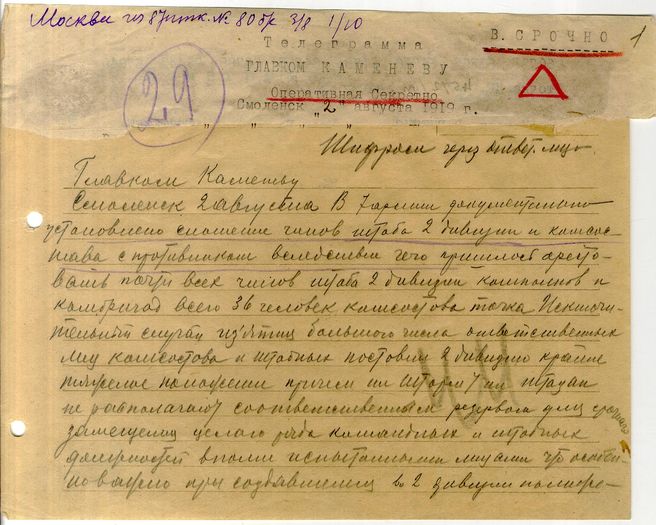 Москва из 87 птк. № 80 бр 3/8 1/10
В. СРОЧНО
1
Телеграмма
ГЛАВКОМ КАМЕНЕВУ
29
Оперативная Секретно
Смоленск "2" августа 1919 г.
Шифром через ответ. лиц.
Главком Каменеву
Смоленск 2 августа В 7 армии документально
установлено сношение чинов штаба 2 дивизии и комсос-
тава с противником вследствии чего пришлось аресто-
вать почти всех чинов штаба 2 дивизии комполков и
комбригад всего 36 человек комсостава точка Исключи-
тельный случай изъятия большого числа ответственных
лиц комсостава и штабных поставил 2 дивизию крайне
тяжелое положение причем ни Штарм 7 ни Штазап
не располагают соответственным резервом для
замещения целого ряда командных и штабных
должностей вполне испытанными лицами что особен-
но важно при создавшемся во 2 дивизии положе-